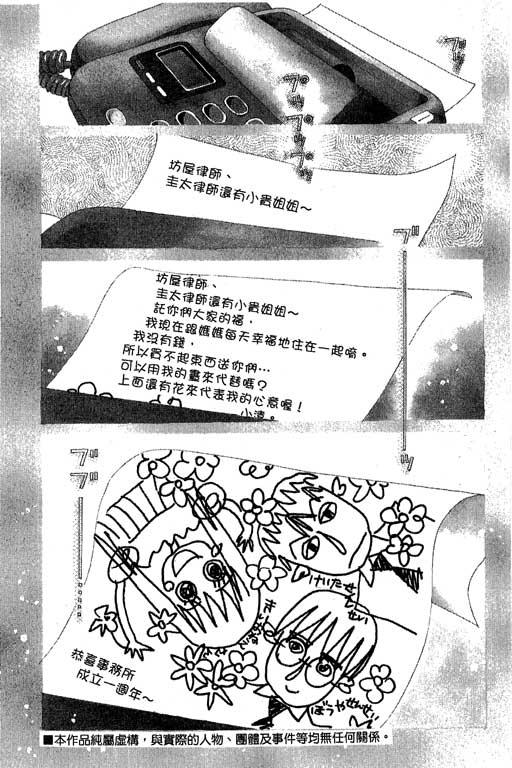 プッ
プッ
プッ
プッ
坊屋律師、
圭太律師還有小貴姐姐～
ブーッ
坊屋律師、
圭太律師還有小貴姐姐～
託你們大家的福，
我現在跟媽媽每天幸福地住在一起唷。
我沒有錢，
所以買不起東西送你們…
可以用我的畫來代替嗎？
上面還有花來代表我的心意喔！
小遠。
ブブ
けいたせんせい
ぼうやせんせい
恭喜事務所
成立一週年～
■本作品純屬虛構，與實際的人物、團體及事件等均無任何關係。